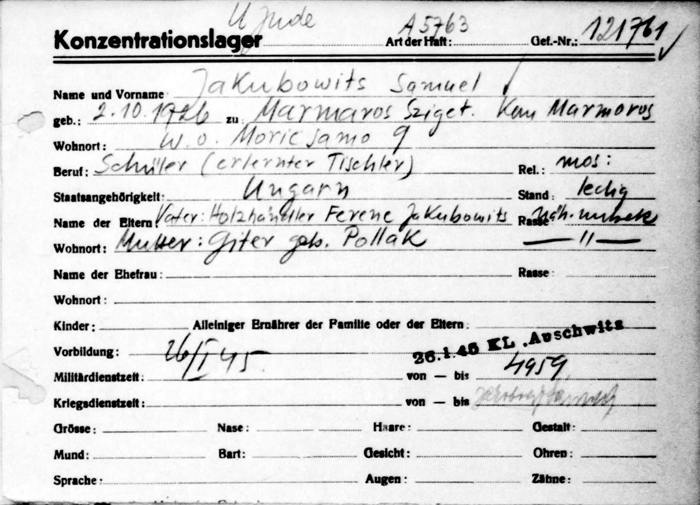 U Jude
A 5763
Konzentrationslager Art der Haft: Gef.-Nr.: 121761
Name und Vorname Jakubowits Samuel
geb.: 2.10.1926 zu Marmaros Sziget. Kom Marmoros
Wohnort: w.o. Moric samo 9
Beruf: Schüler (erlernter Tischler) Rel.: mos:
Staatsangehörigkeit: Ungarn Stand: ledig
Name der Eltern: Vater: Holzhändler Ferenc Jakubowits Rasse
Wohnort: Mutter: Giter geb. Pollak — " —
Name der Ehefrau: Rasse:
Wohnort:
Kinder: Alleiniger Ernährer der Familie oder der Eltern:
Vorbildung: 26/I 45 26.1.45 KL. Auschwitz
Militärdienstzeit: von — bis 4959
Kriegsdienstzeit: von — bis
Grösse: Nase: Haare: Gestalt:
Mund: Bart: Gesicht: Ohren:
Sprache: Augen: Zähne: